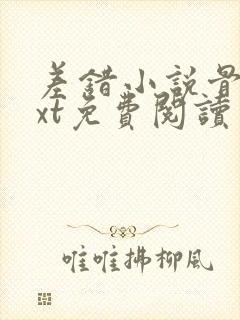 差錯小說最
xt免費閱讀
唯唯拂柳風